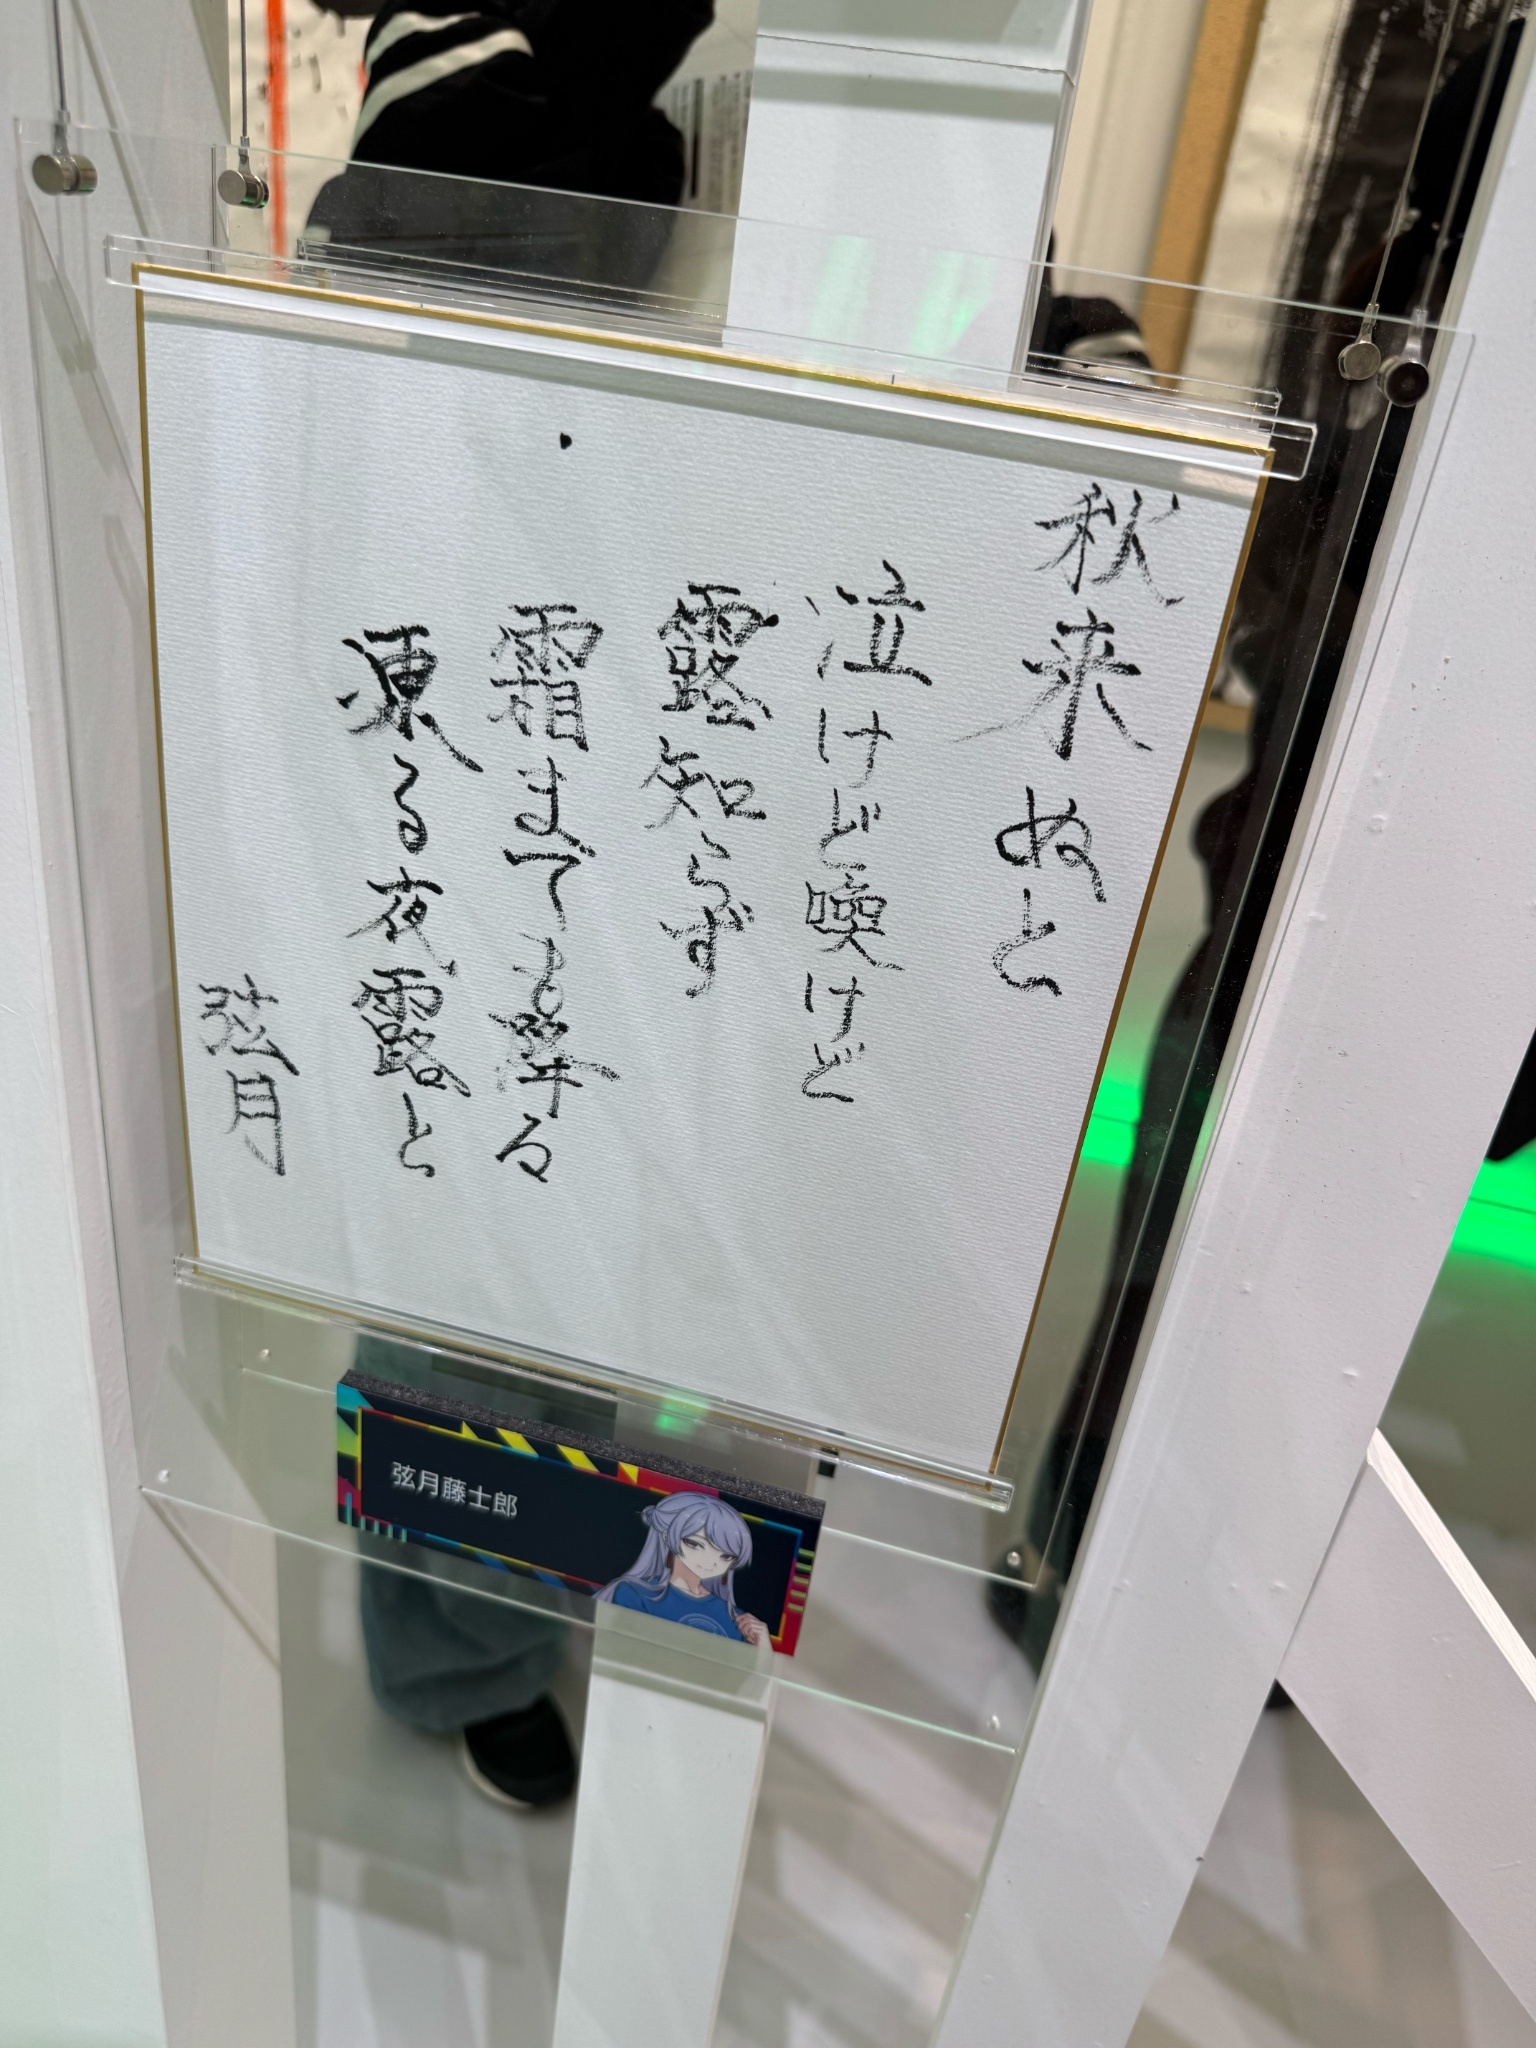 秋来ぬと
泣けど喚けど
露知らず
霜までも降る
凍る夜露と
弦月
弦月藤士郎